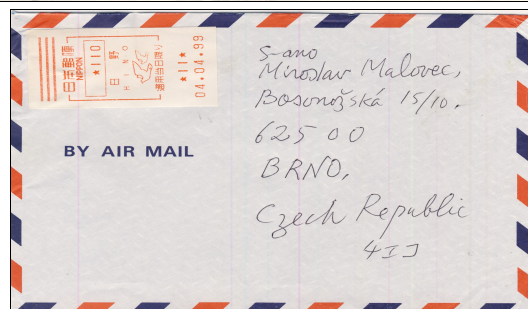 日本郵便
NIPPON
*110
日野
HINO
適用当日限り
*11*
04.04.99
BY AIR MAIL
S-ano
Miroslav Malovec,
Bosonožská 15/10.
625 00
BRNO,
Czech Republic
チエコ